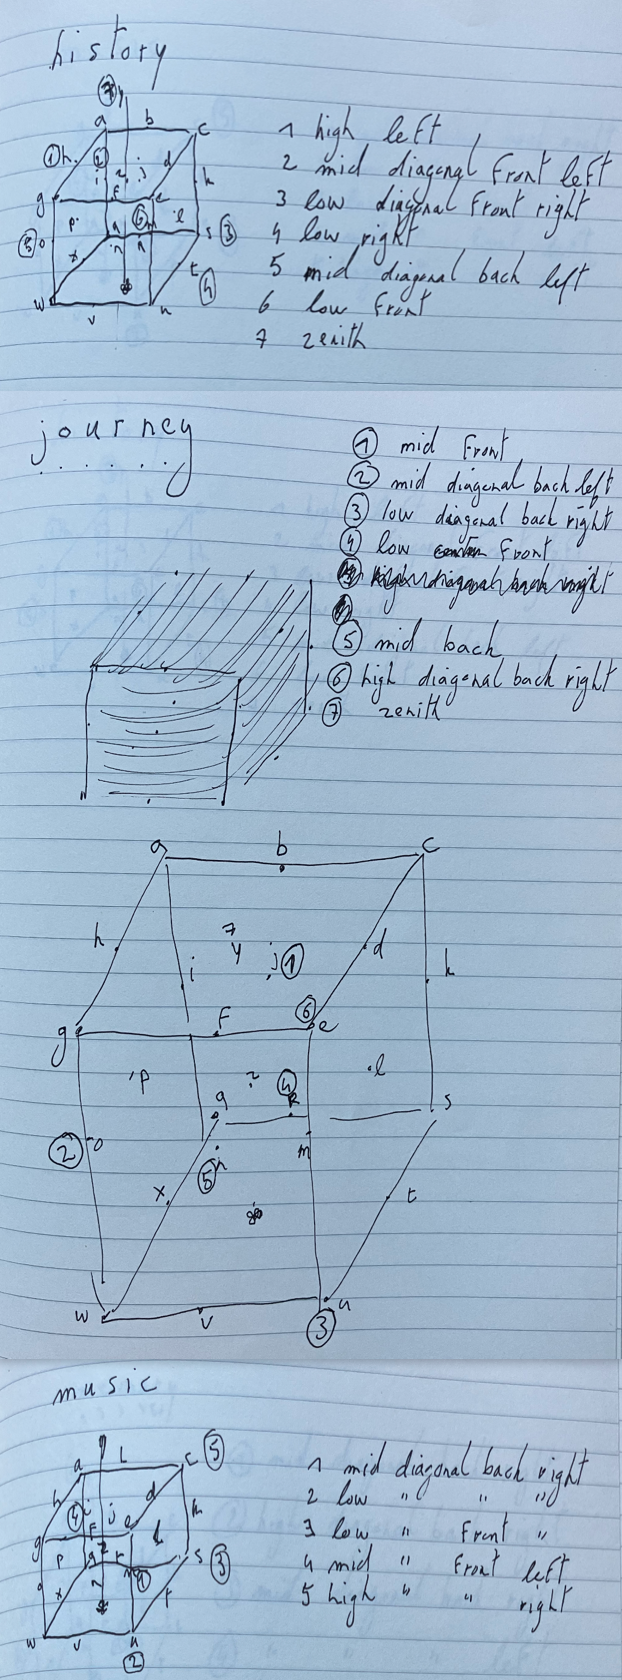 history
7 y
a b c
1 h 2 d
i j k
g f z e
p q 6 m l s 3
5 o r n
x t 4
w v u
1 high left
2 mid diagonal Front left
3 low diagonal Front right
4 low right
5 mid diagonal back left
6 low Front
7 zenith
journey
1 mid Front
2 mid diagonal back left
3 low diagonal back right
4 low Front
5 mid back
6 high diagonal back right
7 zenith
a b c
7
h y j 1 d
i k
6
g F e
p z l
4
q R s
2 o m
5 n
x t
w v u
3
music
a b c 5
h d
4 i j k
g F e l
p z
q r s 3
n m 1
x t
w v u
2
1 mid diagonal back right
2 low " " "
3 low " Front "
4 mid " Front left
5 high " " right